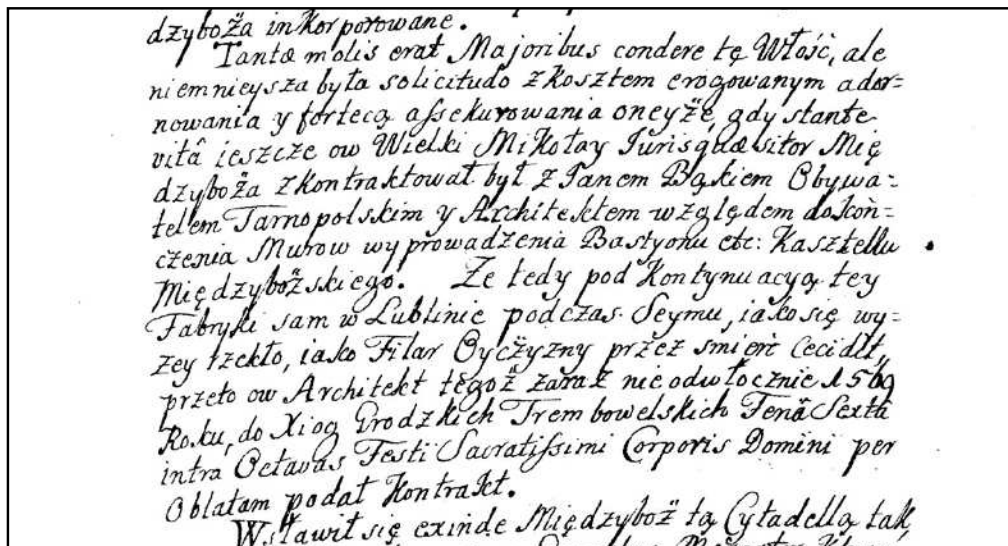 dzyboża inkorporowane.
Tantæ molis erat Majoribus condere tę Włość, ale
niemnieysza była solicitudo z kosztem erogowanym ador=
nowania y fortecą assekurowania oneyże, gdy stante
vitâ ieszcze ow Wielki Mikołay Jurisquæsitor Mię
dzyboża zkontraktował był z Panem Bąkiem Obywa=
telem Tarnopolskim y Architektem względem dokoń=
czenia Murow wyprowadzenia Bastyonu etc: Kasztellu
Międzybożskiego. Ze tedy pod Kontynuacyą tey
Fabryki sam w Lublinie podczas Seymu, iako się wy=
zey rzekło, iako Filar Oyczyzny przez smierć Cecidit,
przeto ow Architekt tegoż zaraz nieodwłocznie 1569
Roku, do Xiąg Grodzkich Trembowelskich Feriâ Sextâ
intra Octavas Festi Sacratissimi Corporis Domini per
Oblatam podał Kontrakt.
Wsławił się exinde Międzyboż tą Cytadellą tak